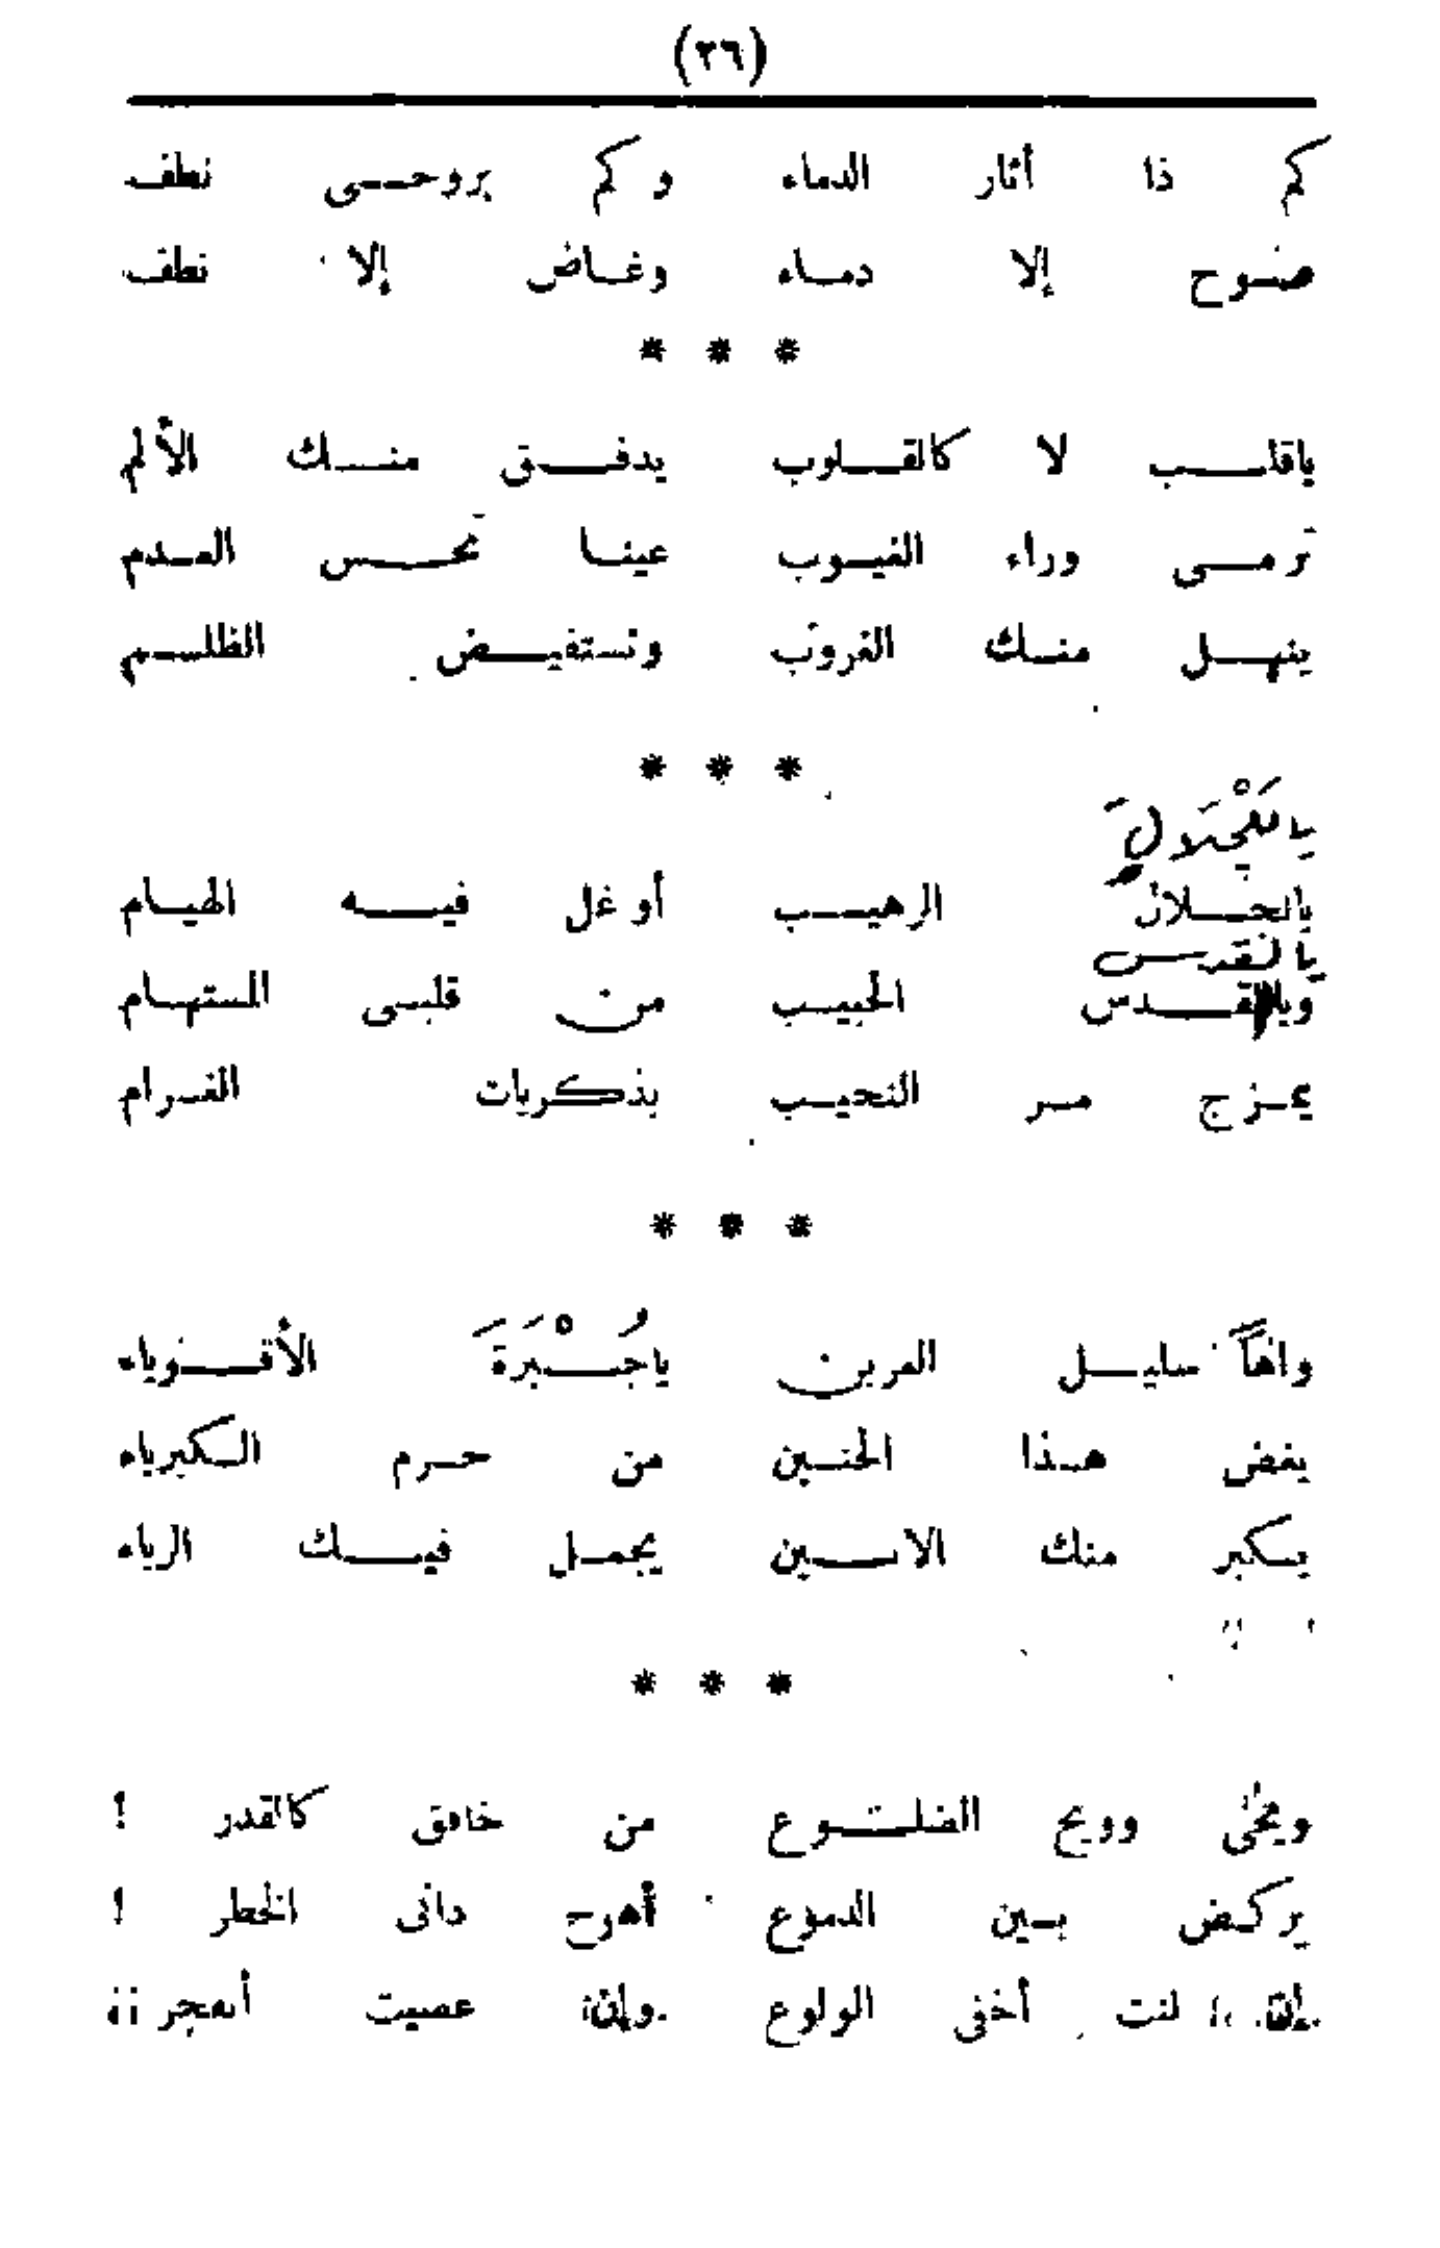 (٢٦)
كم ذا أثار الدماء وكم بروحى نطف
صوح إلا دماء وغاض إلا نطف
* * *
ياقلب لا كالقلوب يدفق منك الألم
ترمى وراء الغيوب عينا تحس العدم
ينهل منك الغروب وتستفيض الظلم
* * *
يا لَلْجَلالِ
بالجلال الرهيب أوغل فيه الهيام
يا لقدس
وبالقدس الحبيب من قلبى المستهام
يمزج مر النحيب بذكريات الغرام
* * *
واهاً سليل العرين ياجُبْرَةَ الأقوياء
يغض هذا الحنين من حرم الكبرياء
يكبر منك الانين يجمل فيك الرياء
* * *
ويحى وويح الضلوع من خافق كالقدر !
يركض بين الدموع أهوج دانى الخطر !
لنت أخفى الولوع وإن عصيت أنفجر !!